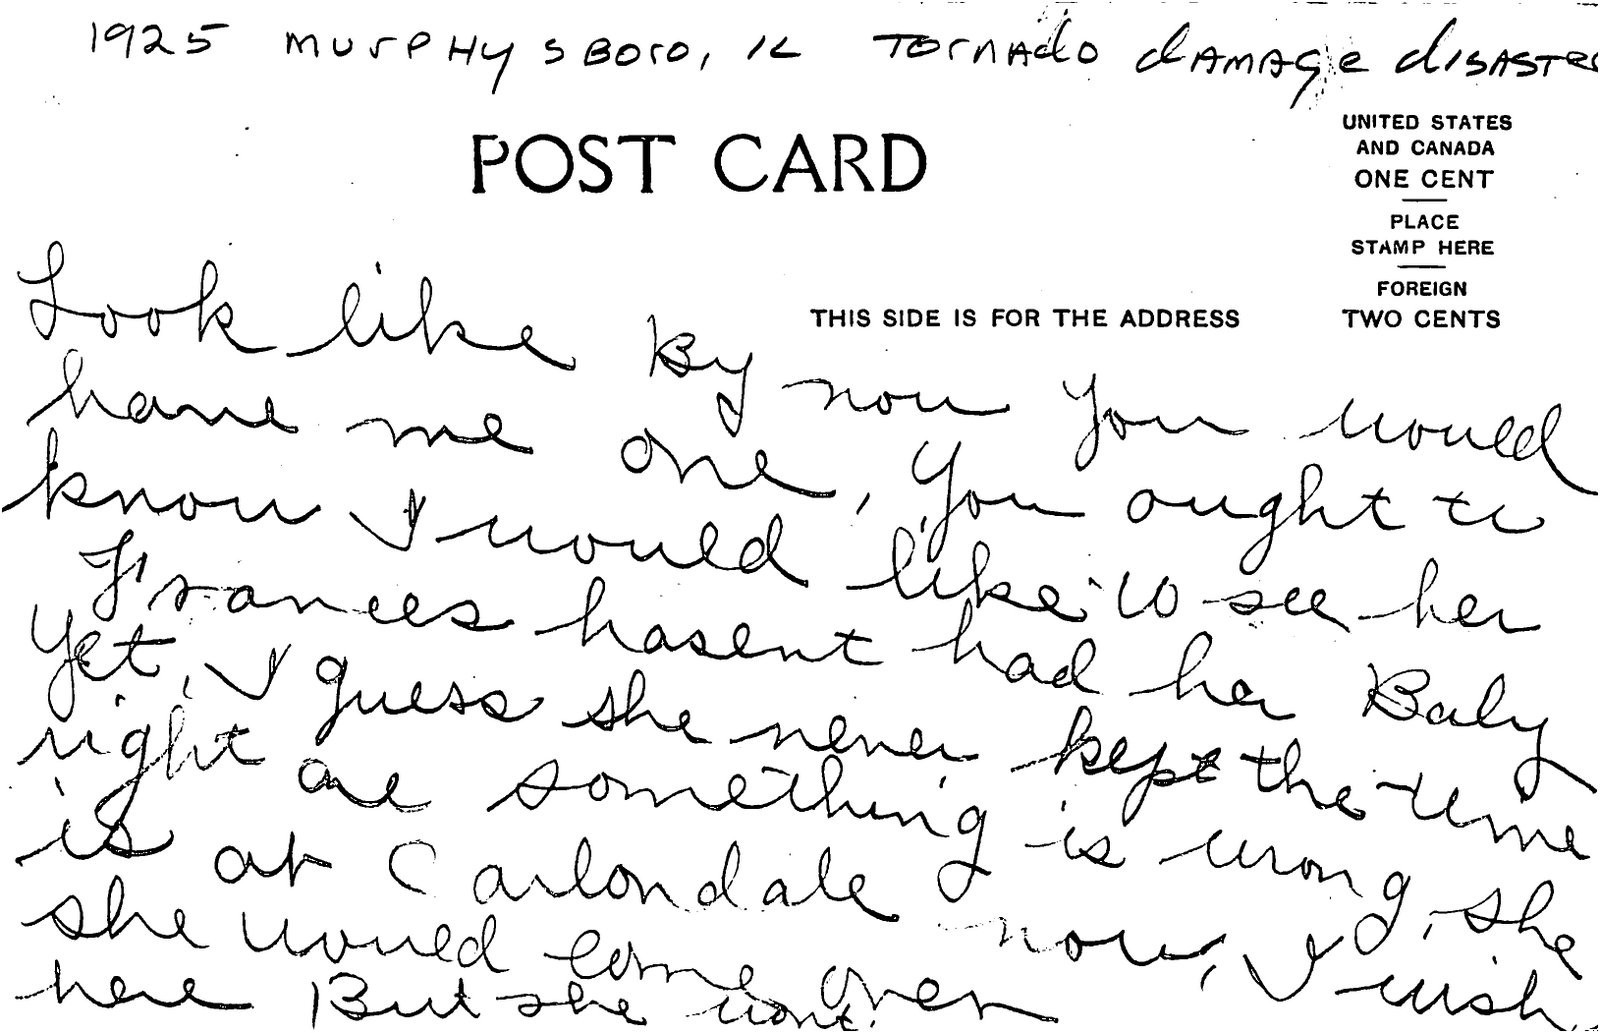 1925 MURPHYSBORO, IL TORNADO DAMAGE DISASTER
POST CARD
UNITED STATES
AND CANADA
ONE CENT
PLACE
STAMP HERE
FOREIGN
TWO CENTS
THIS SIDE IS FOR THE ADDRESS
Look like By now you would
have me one, You ought to
know I would like to see her
Frances hasent had her Baby
yet, I guess she never kept the time
right are something is wrong, she
is at Carbondale now, I wish
she would come over
here But she wont.